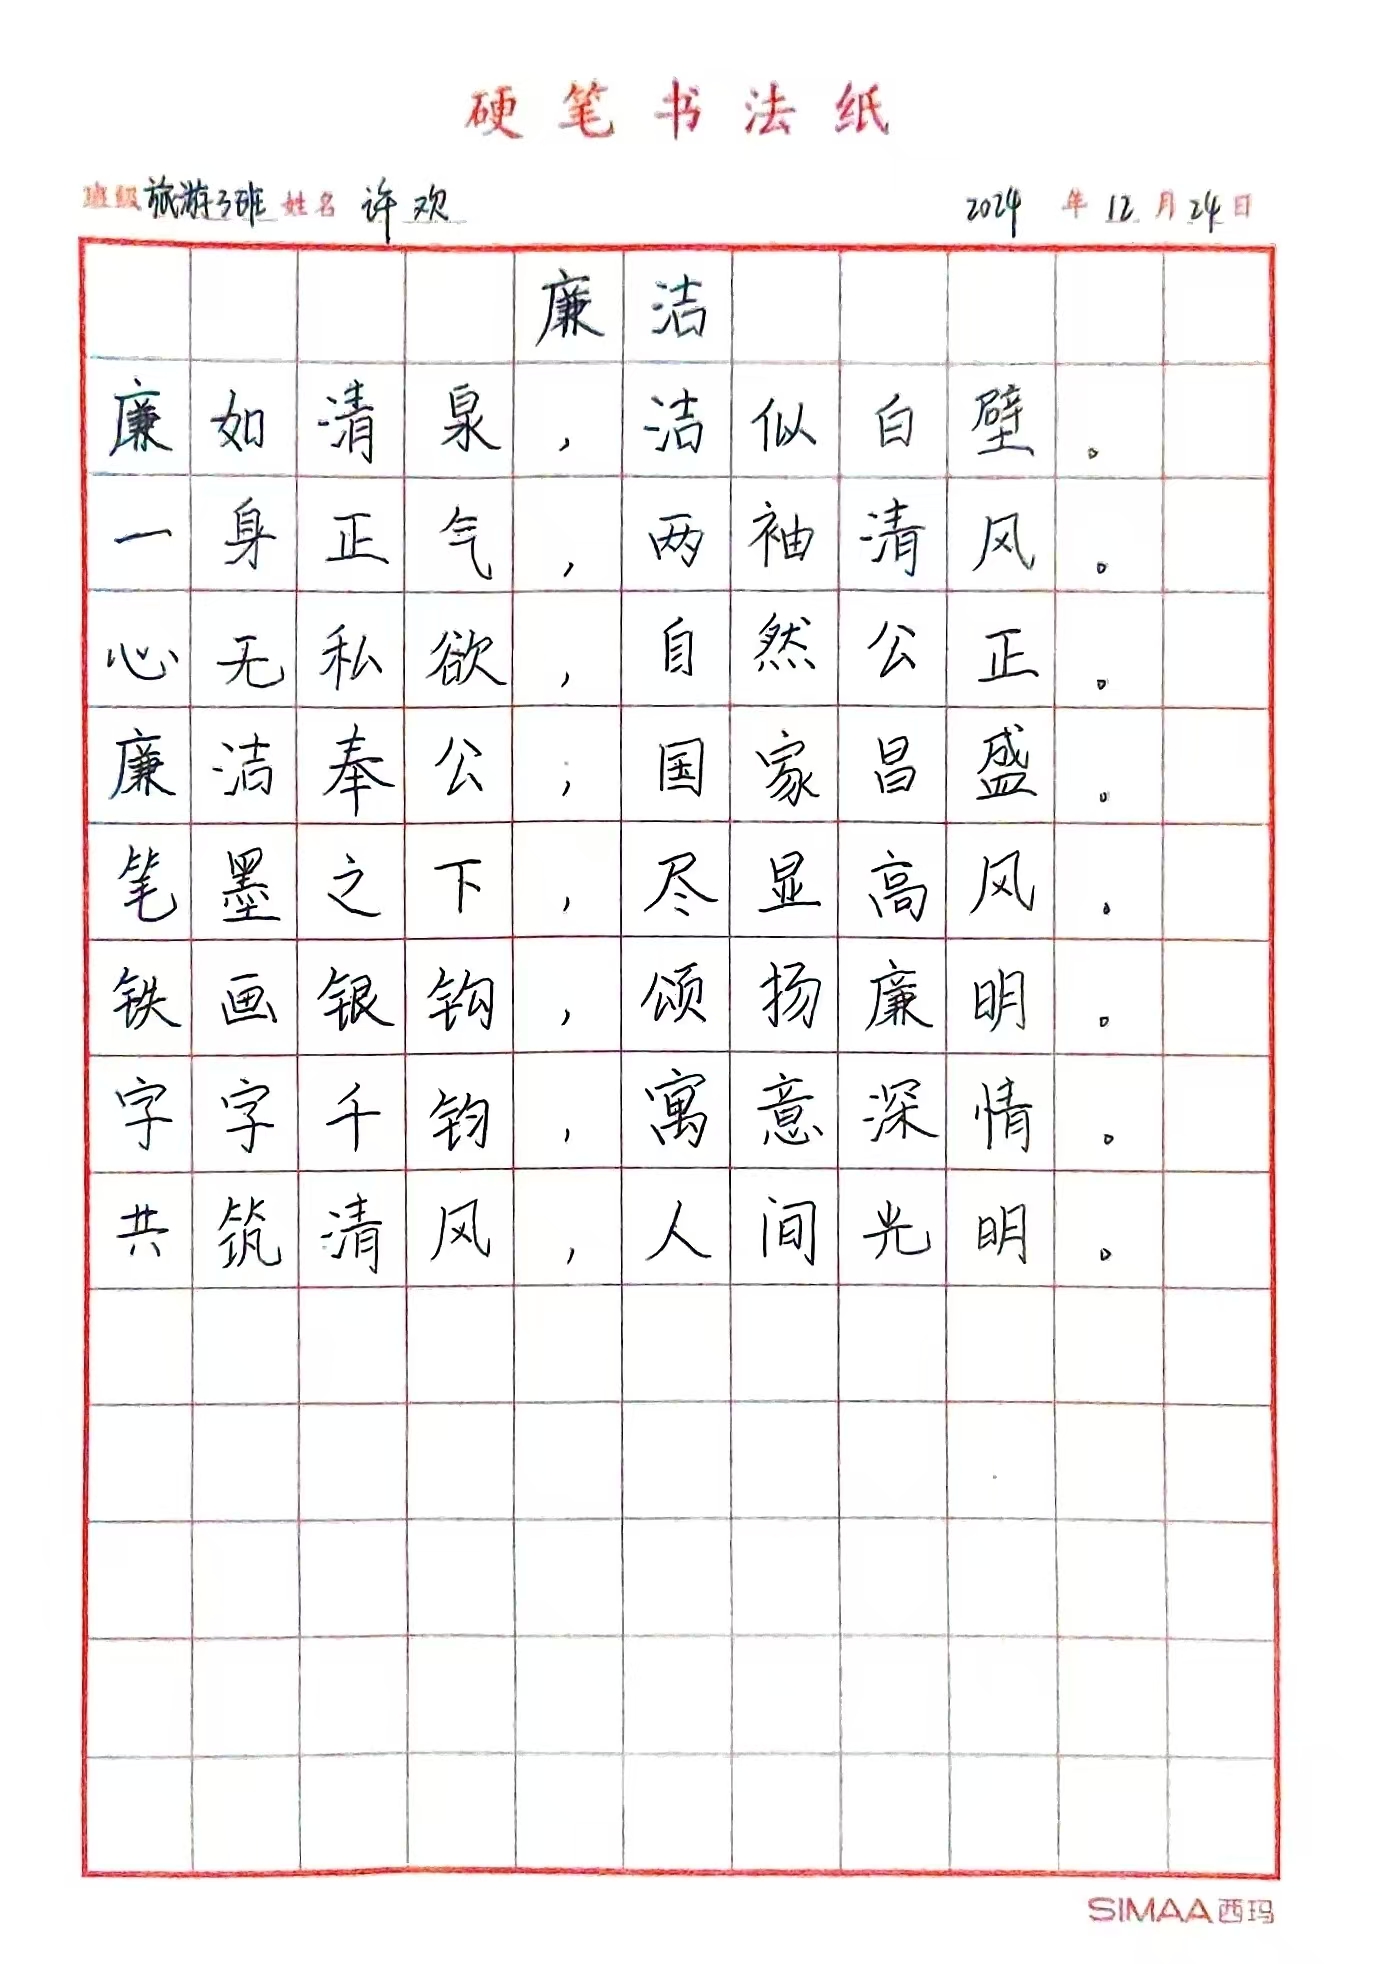 硬笔书法纸
班级 旅游3班 姓名 许欢 2024 年 12 月 24 日
廉洁
廉如清泉，洁似白壁。
一身正气，两袖清风。
心无私欲，自然公正。
廉洁奉公，国家昌盛。
笔墨之下，尽显高风。
铁画银钩，颂扬廉明。
字字千钧，寓意深情。
共筑清风，人间光明。
SIMAA西玛